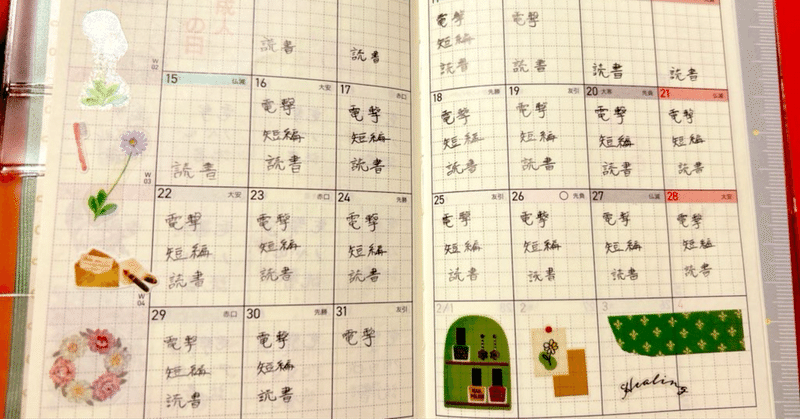 成人
の日
読書
読書
電撃
短編
読書
電撃
読書
読書
読書
W
02
15 仏滅
読書
16 大安
電撃
短編
読書
17 赤口
電撃
短編
読書
18 先勝
電撃
短編
読書
19 友引
電撃
短編
読書
20 大寒 先負
電撃
短編
読書
21 仏滅
電撃
短編
読書
W
03
22 大安
電撃
短編
読書
23 赤口
電撃
短編
読書
24 先勝
電撃
短編
読書
25 友引
電撃
短編
読書
26 先負
電撃
短編
読書
27 仏滅
電撃
短編
読書
28 大安
電撃
短編
読書
W
04
29 赤口
電撃
短編
読書
30 先勝
電撃
短編
読書
31 友引
電撃
2/1
2
3
4
Healing